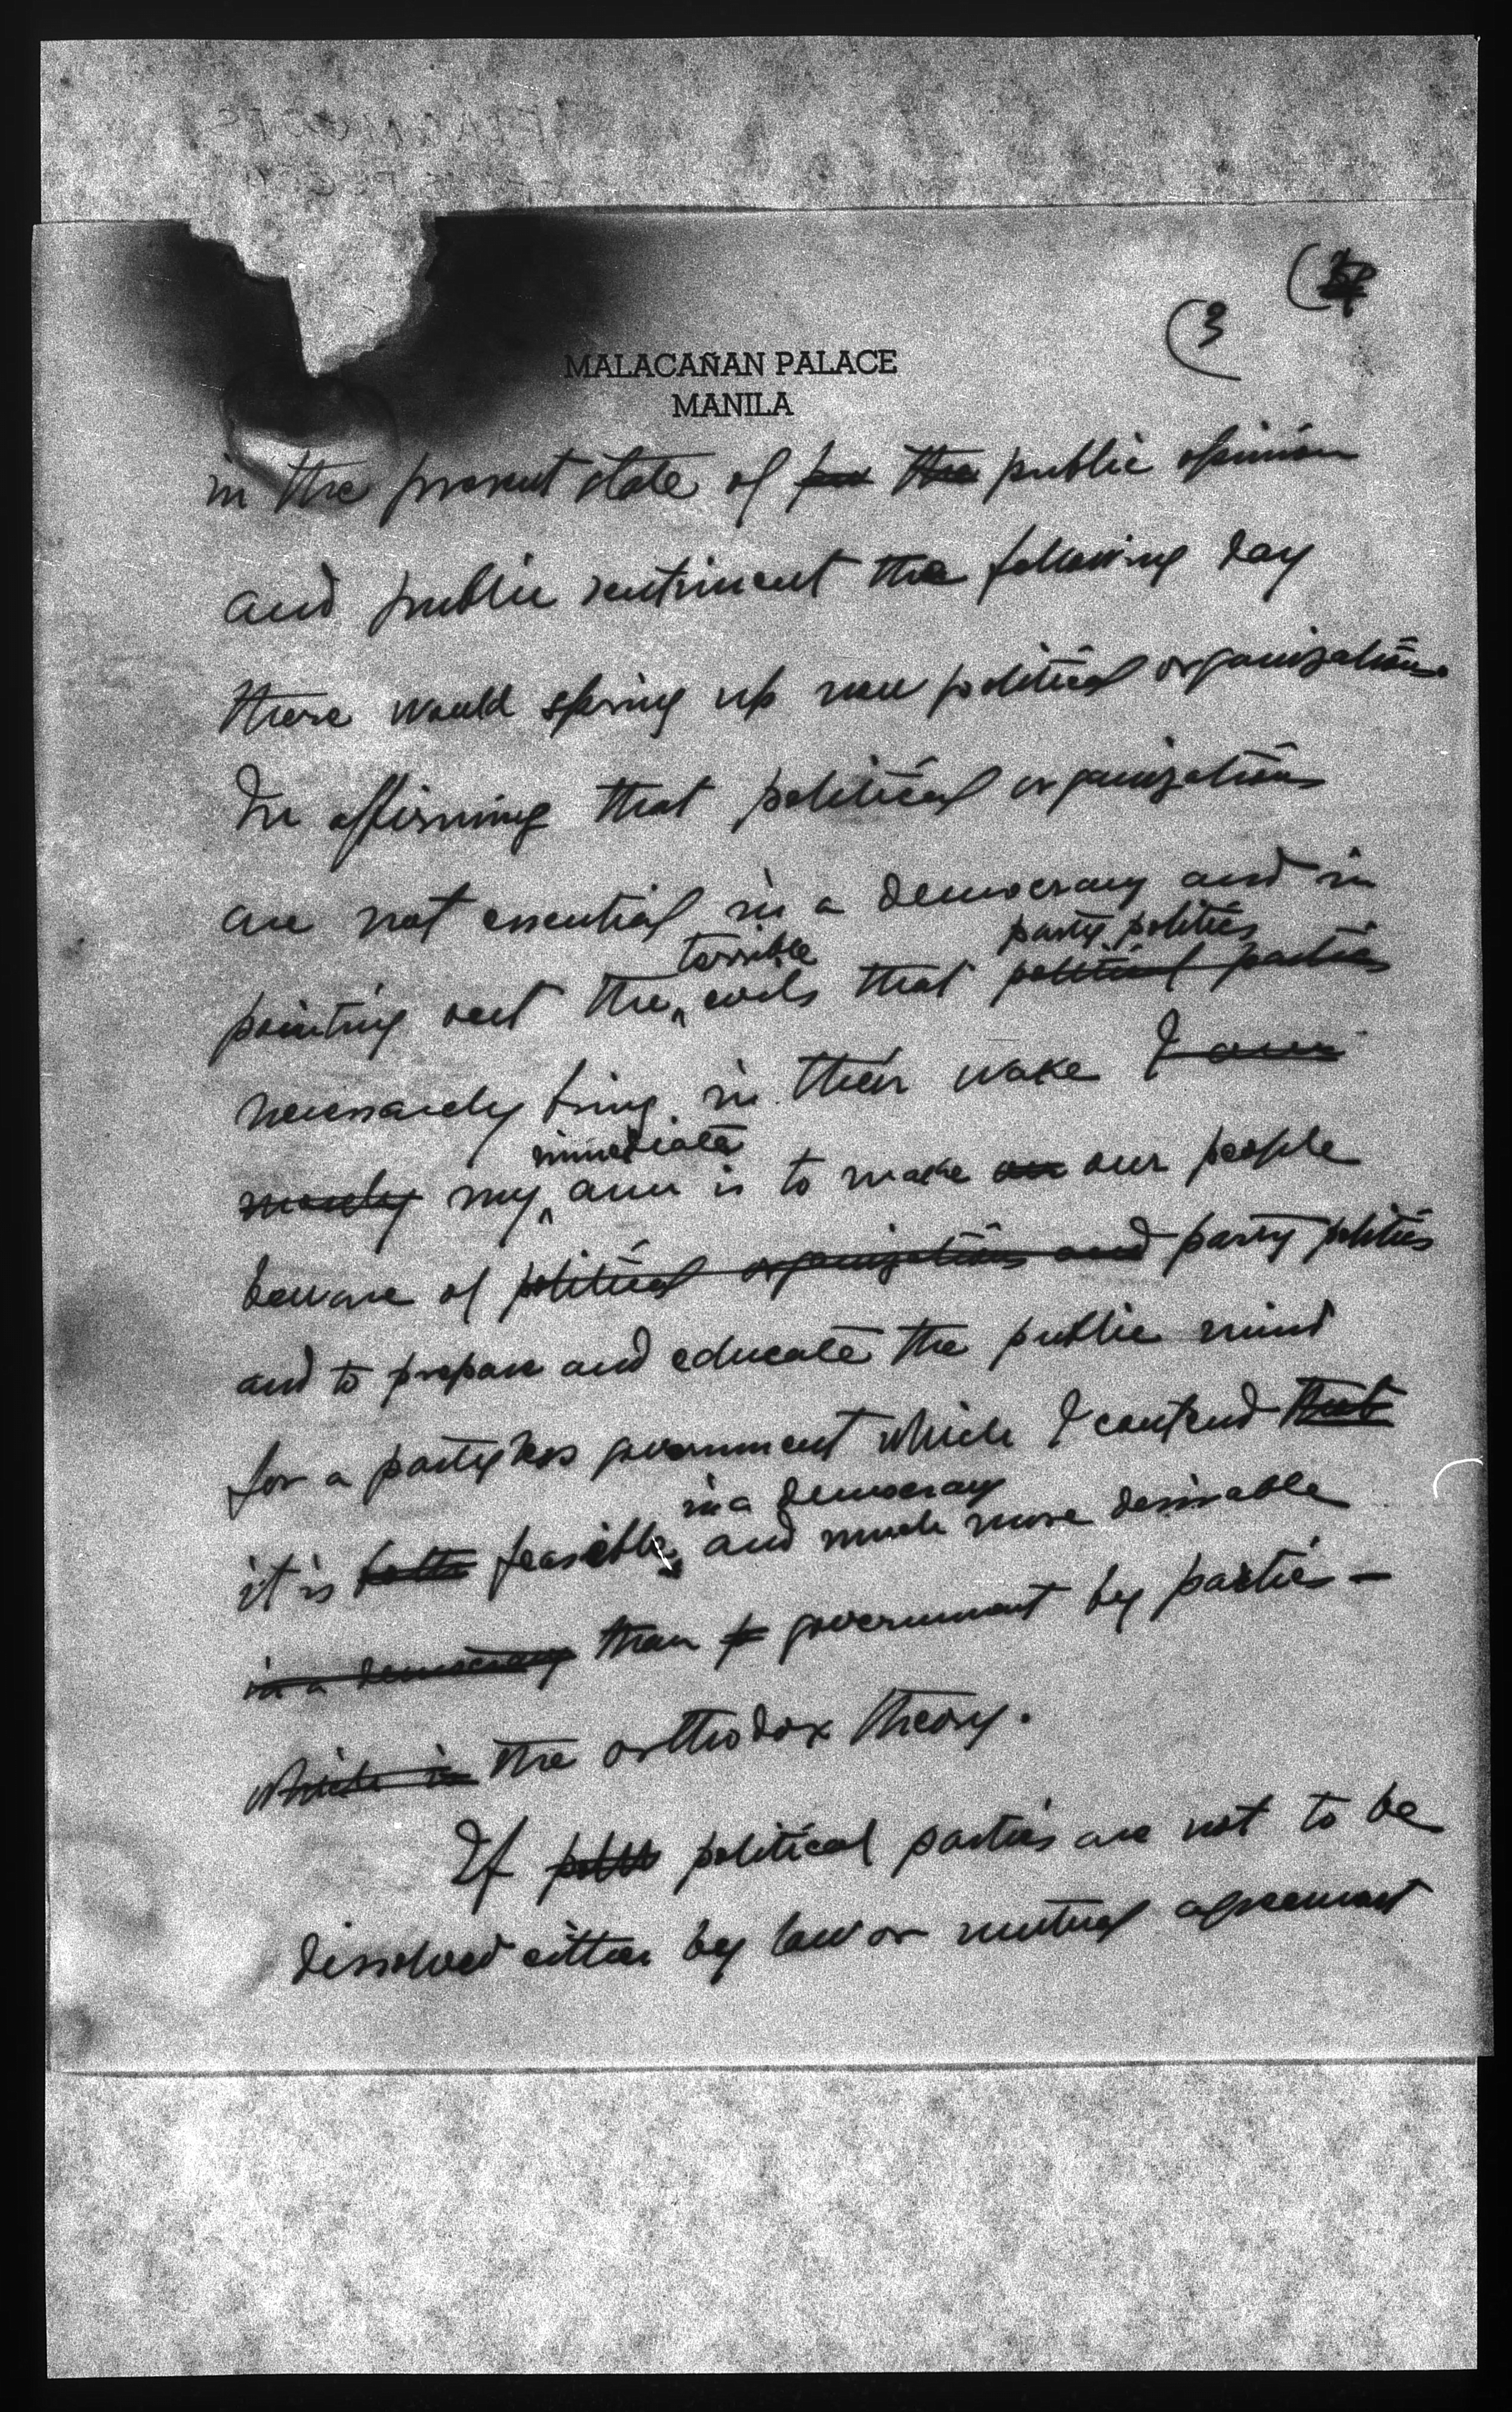 (3
MALACAÑAN PALACE
MANILA
in the present state of the public opinion
and public sentiment the following day
there would spring up new political organizations.
In affirming that political organizations
are not essential in a democracy and in
terrible party politics
pointing out the evils that political parties
necessarily bring in their wake I am
immediate
merely my aim is to make our people
beware of political organizations and party politics
and to prepare and educate the public mind
for a partyless government which I contend that
in a democracy
it is both feasible and much more desirable
in a democracy than government by parties —
which is the orthodox theory.
If political parties are not to be
dissolved either by law or mutual agreement